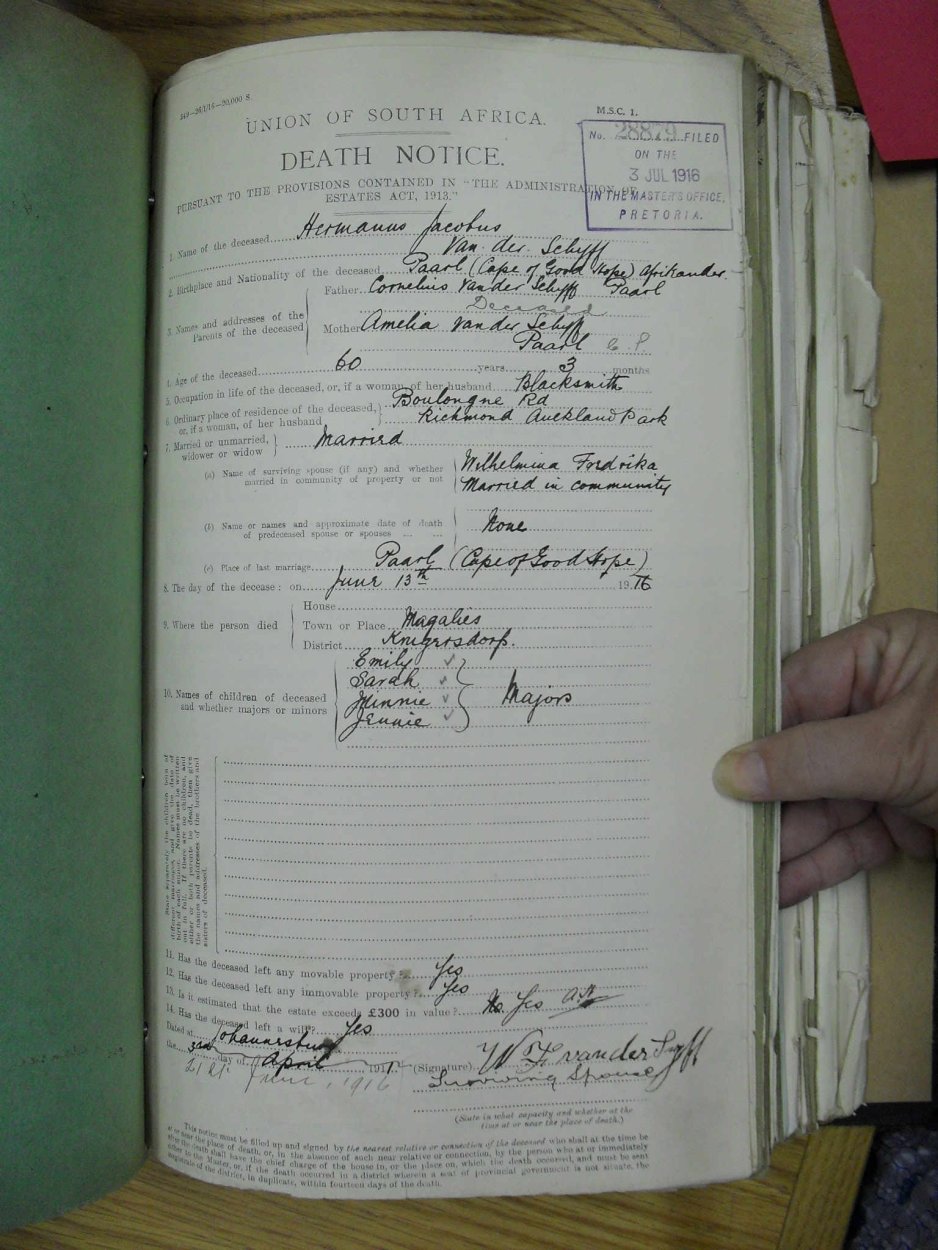 M.S.C. 1.
UNION OF SOUTH AFRICA.
DEATH NOTICE.
No. 28879 FILED
ON THE
3 JUL 1916
IN THE MASTER'S OFFICE,
PRETORIA.
PURSUANT TO THE PROVISIONS CONTAINED IN "THE ADMINISTRATION OF
ESTATES ACT, 1913."
1. Name of the deceased Hermanus Jacobus
Van der Schyff
2. Birthplace and Nationality of the deceased Paarl (Cape of Good Hope) Afrikander
3. Names and addresses of the Parents of the deceased
Father Cornelius Van der Schyff Paarl
Deceased
Mother Amelia Van der Schyff
Paarl C. P.
4. Age of the deceased 60 years 3 months
5. Occupation in life of the deceased, or, if a woman, of her husband Blacksmith
6. Ordinary place of residence of the deceased, or, if a woman, of her husband
Boulongne Rd
Richmond Auckland Park
7. Married or unmarried, widower or widow Married
(a) Name of surviving spouse (if any) and whether married in community of property or not
Wilhelmina Fredrika
Married in community
(b) Name or names and approximate date of death of predeceased spouse or spouses ... ... None
(c) Place of last marriage Paarl (Cape of Good Hope)
8. The day of the decease: on June 13th 1916
9. Where the person died
House
Town or Place Magalies
District Krugersdorp.
10. Names of children of deceased and whether majors or minors
Emily
Sarah
Minnie
Jennie
Majors
State separately the children born of
different marriages, and give the date of
birth of each minor. Names must be written
out in full. If there are no children, and
either or both parents be dead, then give
the names and addresses of the brothers and
sisters of deceased.
11. Has the deceased left any movable property? Yes
12. Has the deceased left any immovable property? Yes
13. Is it estimated that the estate exceeds £300 in value? No Yes
14. Has the deceased left a will? Yes
Dated at Johannesburg
the 3rd day of April 191
21st June, 1916
(Signature) W F van der Schyff
Surviving Spouse
(State in what capacity and whether at the
time at or near the place of death.)
This notice must be filled up and signed by the nearest relative or connection of the deceased who shall at the time be
at or near the place of death, or, in the absence of such near relative or connection, by the person who at or immediately
after the death shall have the chief charge of the house in, or the place on, which the death occurred, and must be sent
either to the Master, or, if the death occurred in a district wherein a seat of provincial government is not situate, the
magistrate of the district, in duplicate, within fourteen days of the death.